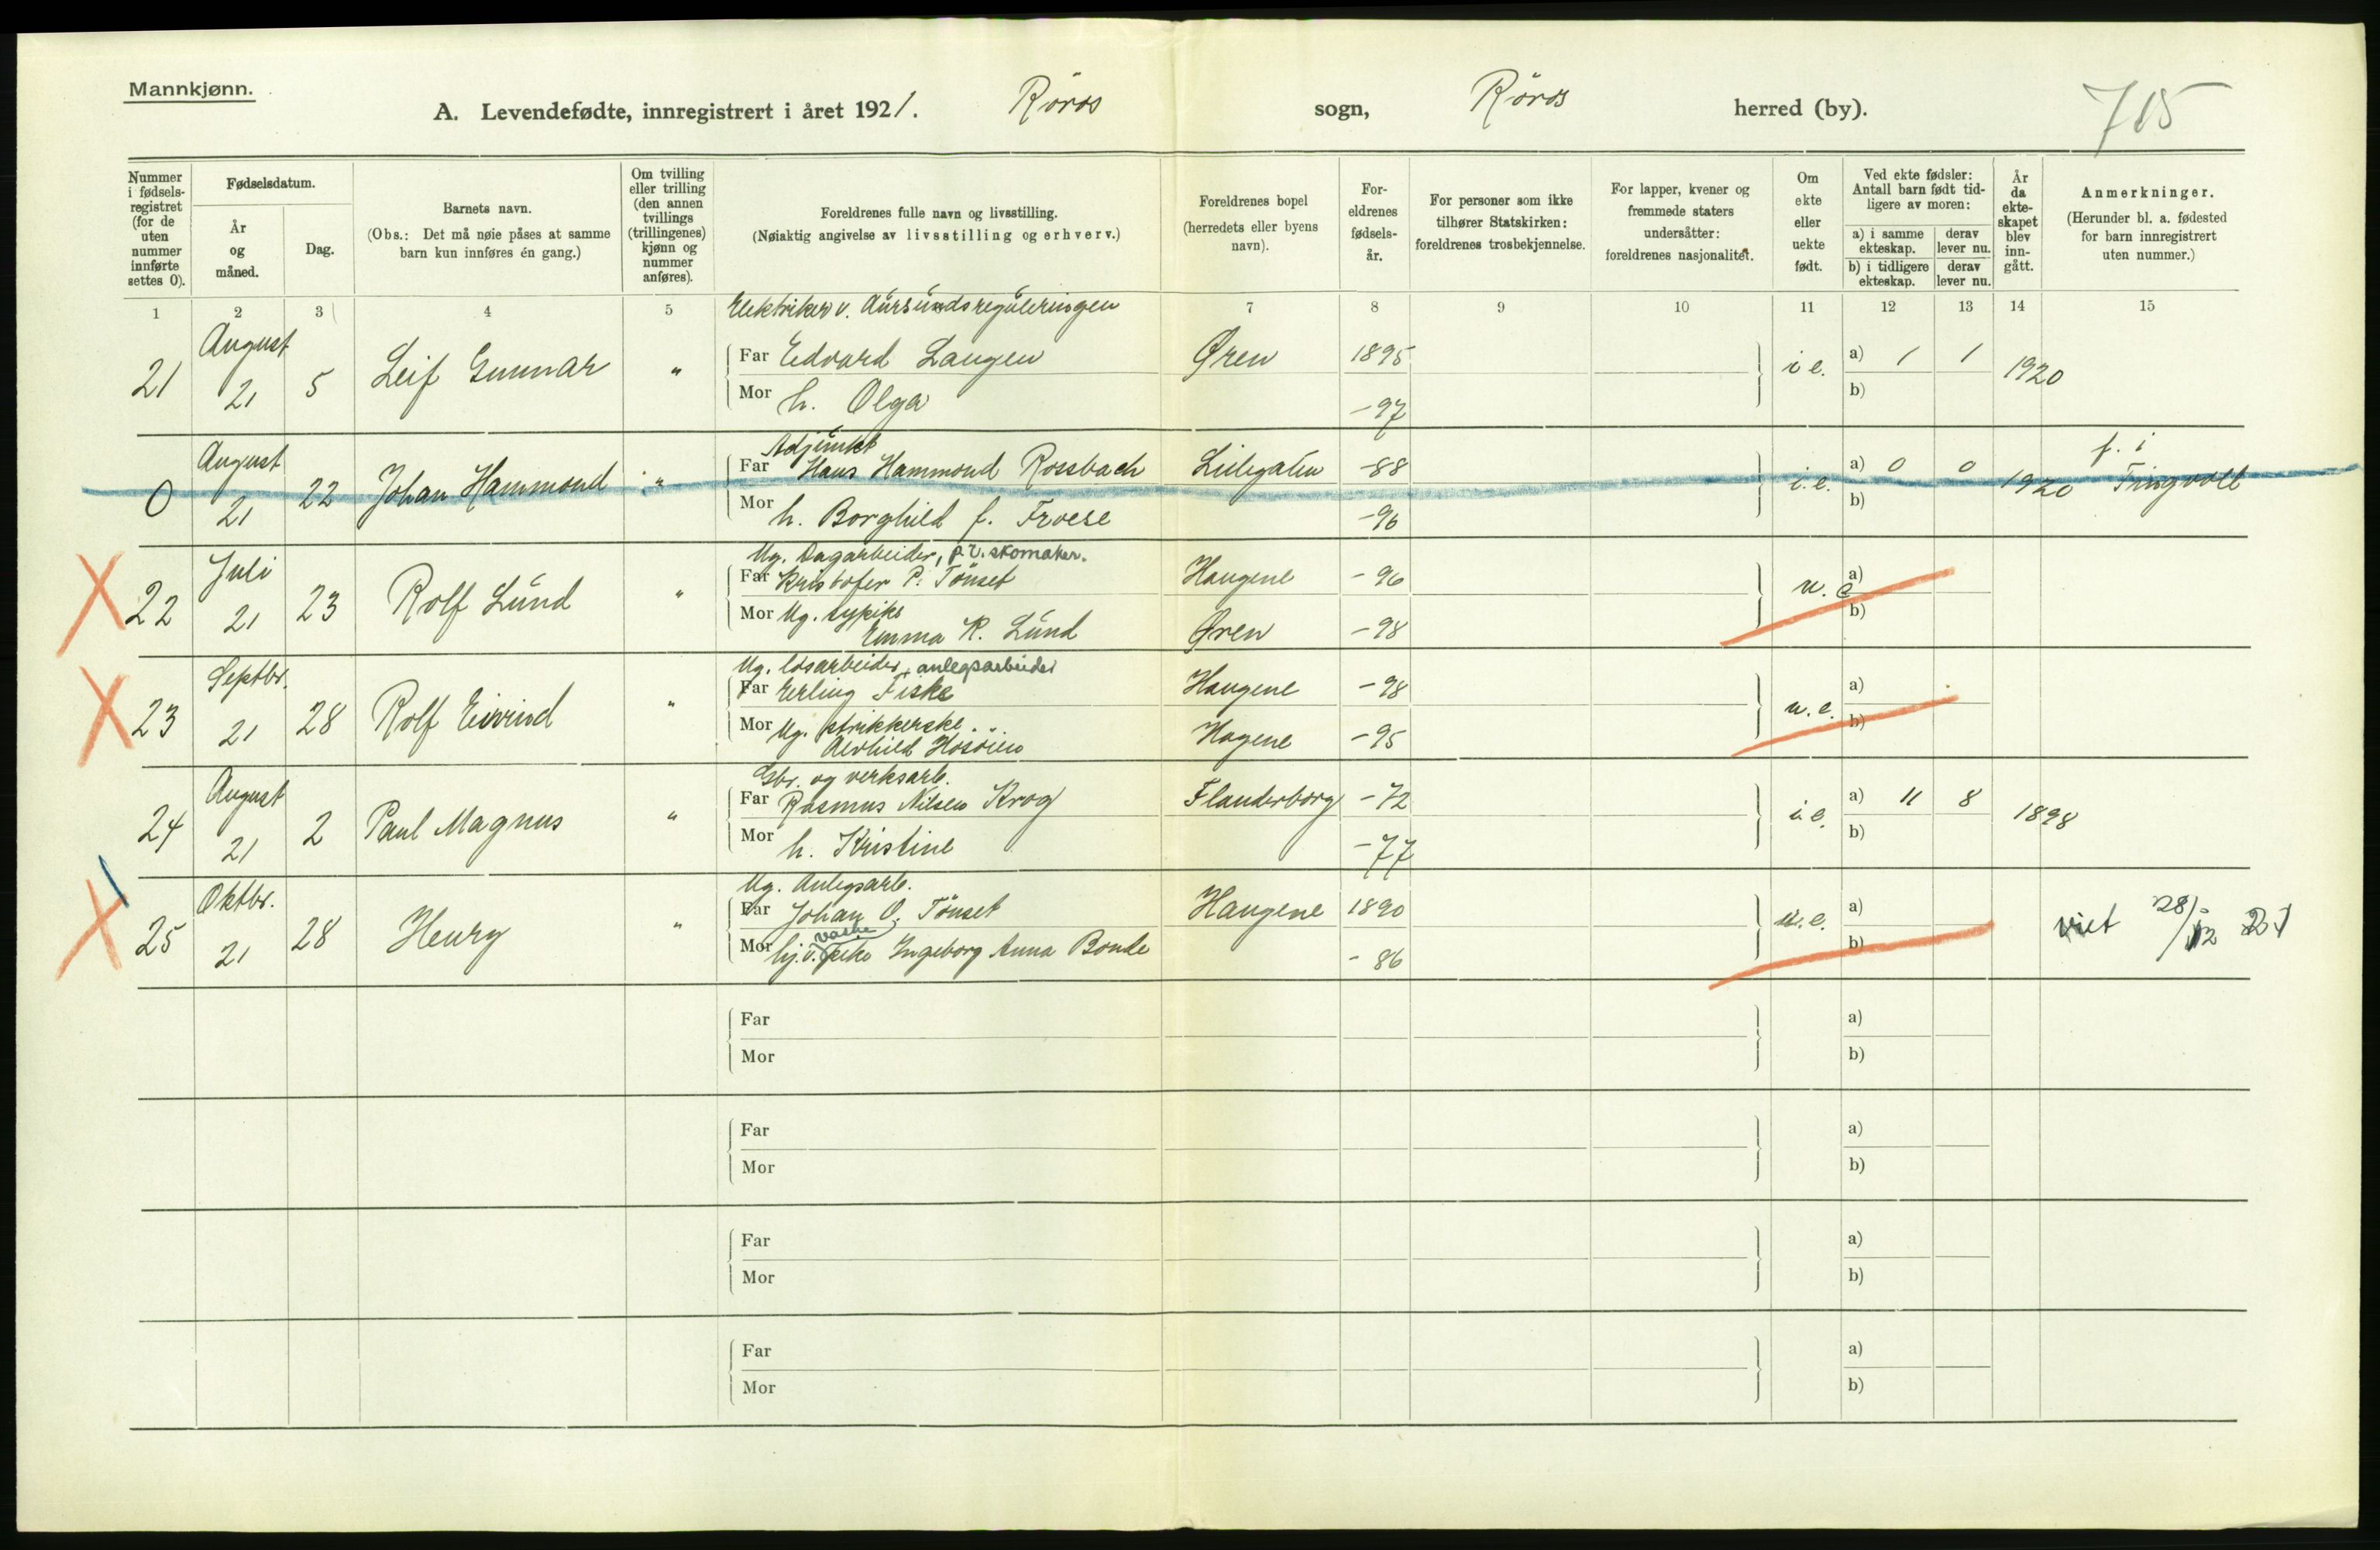 Mannkjønn.
A. Levendefødte, innregistrert i året 1921. Röros sogn, Röros herred (by). 715
Nummer i fødsels-registret (for de uten nummer innførte settes 0).
Fødselsdatum.
År og måned.
Dag.
Barnets navn.
(Obs.: Det må nøie påses at samme barn kun innføres én gang.)
Om tvilling eller trilling (den annen tvillings (trillingenes) kjønn og nummer anføres).
Foreldrenes fulle navn og livsstilling.
(Nøiaktig angivelse av livsstilling og erhverv.)
Foreldrenes bopel (herredets eller byens navn).
For-eldrenes fødsels-år.
For personer som ikke tilhører Statskirken: foreldrenes trosbekjennelse.
For lapper, kvener og fremmede staters undersåtter: foreldrenes nasjonalitet.
Om ekte eller uekte født.
Ved ekte fødsler: Antall barn født tid-ligere av moren:
a) i samme ekteskap. derav lever nu.
b) i tidligere ekteskap. derav lever nu.
År da ekte-skapet blev inn-gått.
Anmerkninger.
(Herunder bl. a. fødested for barn innregistrert uten nummer.)
1 2 3 4 5 7 8 9 10 11 12 13 14 15
Elektriker v. Aursundsreguleringen
21 August 21 5 Leif Gunnar " Far Edvard Langen Øren 1895 i e. a) 1 1 1920
Mor h. Olga -97 b)
Adjunkt
0 August 21 22 Johan Hammond " Far Hans Hammond Rossbach Lillegaten -88 i.e. a) 0 0 1920 f. i Tingvoll
Mor h. Borghild f. Froese -96 b)
Ug. Dagarbeider, p.t. skomaker.
22 Juli 21 23 Rolf Lund " Far Kristofer P. Tönset Haugene -96 u. e a)
Mor Ug. typike
Emma K. Lund Øren -98 b)
Ug. løsarbeider, anlegsarbeider
23 Septbr. 21 28 Rolf Eivind " Far Erling Fiske Haugene -98 u. e. a)
Mor Ug. strikkerske
Alvhild Hosöien Hagene -95 b)
Gbr. og verksarb.
24 August 21 2 Paul Magnus " Far Rasmus Nilsen Krog Flanderborg -72 i.e. a) 11 8 1898
Mor h. Kristine -77 b)
Ug. Anlegsarb.
25 Oktbr. 21 28 Henry " Far Johan O. Tönset Haugene 1890 u.e. a) viet 28/12 21
Mor vaske Ingeborg Anna Bonde -86 b)
Far a)
Mor b)
Far a)
Mor b)
Far a)
Mor b)
Far a)
Mor b)